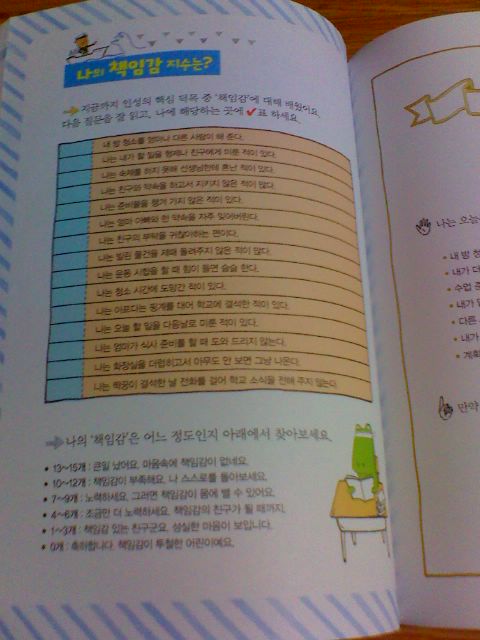 나의 책임감 지수는?
지금까지 인성의 핵심 덕목 중 '책임감'에 대해 배웠어요.
다음 질문을 잘 읽고, 나에 해당하는 곳에 ✔표 하세요.
내 방 청소를 엄마나 다른 사람이 해 준다.
나는 내가 할 일을 형제나 친구에게 미룬 적이 있다.
나는 숙제를 하지 못해 선생님한테 혼난 적이 있다.
나는 친구와 약속을 하고서 지키지 않은 적이 많다.
나는 준비물을 챙겨 가지 않은 적이 있다.
나는 엄마 아빠와 한 약속을 자주 잊어버린다.
나는 친구의 부탁을 귀찮아하는 편이다.
나는 빌린 물건을 제때 돌려주지 않은 적이 많다.
나는 운동 시합을 할 때 힘이 들면 슬슬 한다.
나는 청소 시간에 도망간 적이 있다.
나는 아프다는 핑계를 대어 학교에 결석한 적이 있다.
나는 오늘 할 일을 다음날로 미룬 적이 있다.
나는 엄마가 식사 준비를 할 때 도와 드리지 않는다.
나는 화장실을 더럽히고서 아무도 안 보면 그냥 나온다.
나는 짝꿍이 결석한 날 전화를 걸어 학교 소식을 전해 주지 않는다.
나의 '책임감'은 어느 정도인지 아래에서 찾아보세요.
• 13~15개 : 큰일 났어요. 마음속에 책임감이 없네요.
• 10~12개 : 책임감이 부족해요. 나 스스로를 돌아보세요.
• 7~9개 : 노력하세요. 그러면 책임감이 몸에 밸 수 있어요.
• 4~6개 : 조금만 더 노력하세요. 책임감의 친구가 될 때까지.
• 1~3개 : 책임감 있는 친구군요. 성실한 마음이 보입니다.
• 0개 : 축하합니다. 책임감이 투철한 어린이예요.
나는 오늘
• 내 방 청
• 내가 더
• 수업 준
• 내가
• 다른
• 내가
• 계획
만약